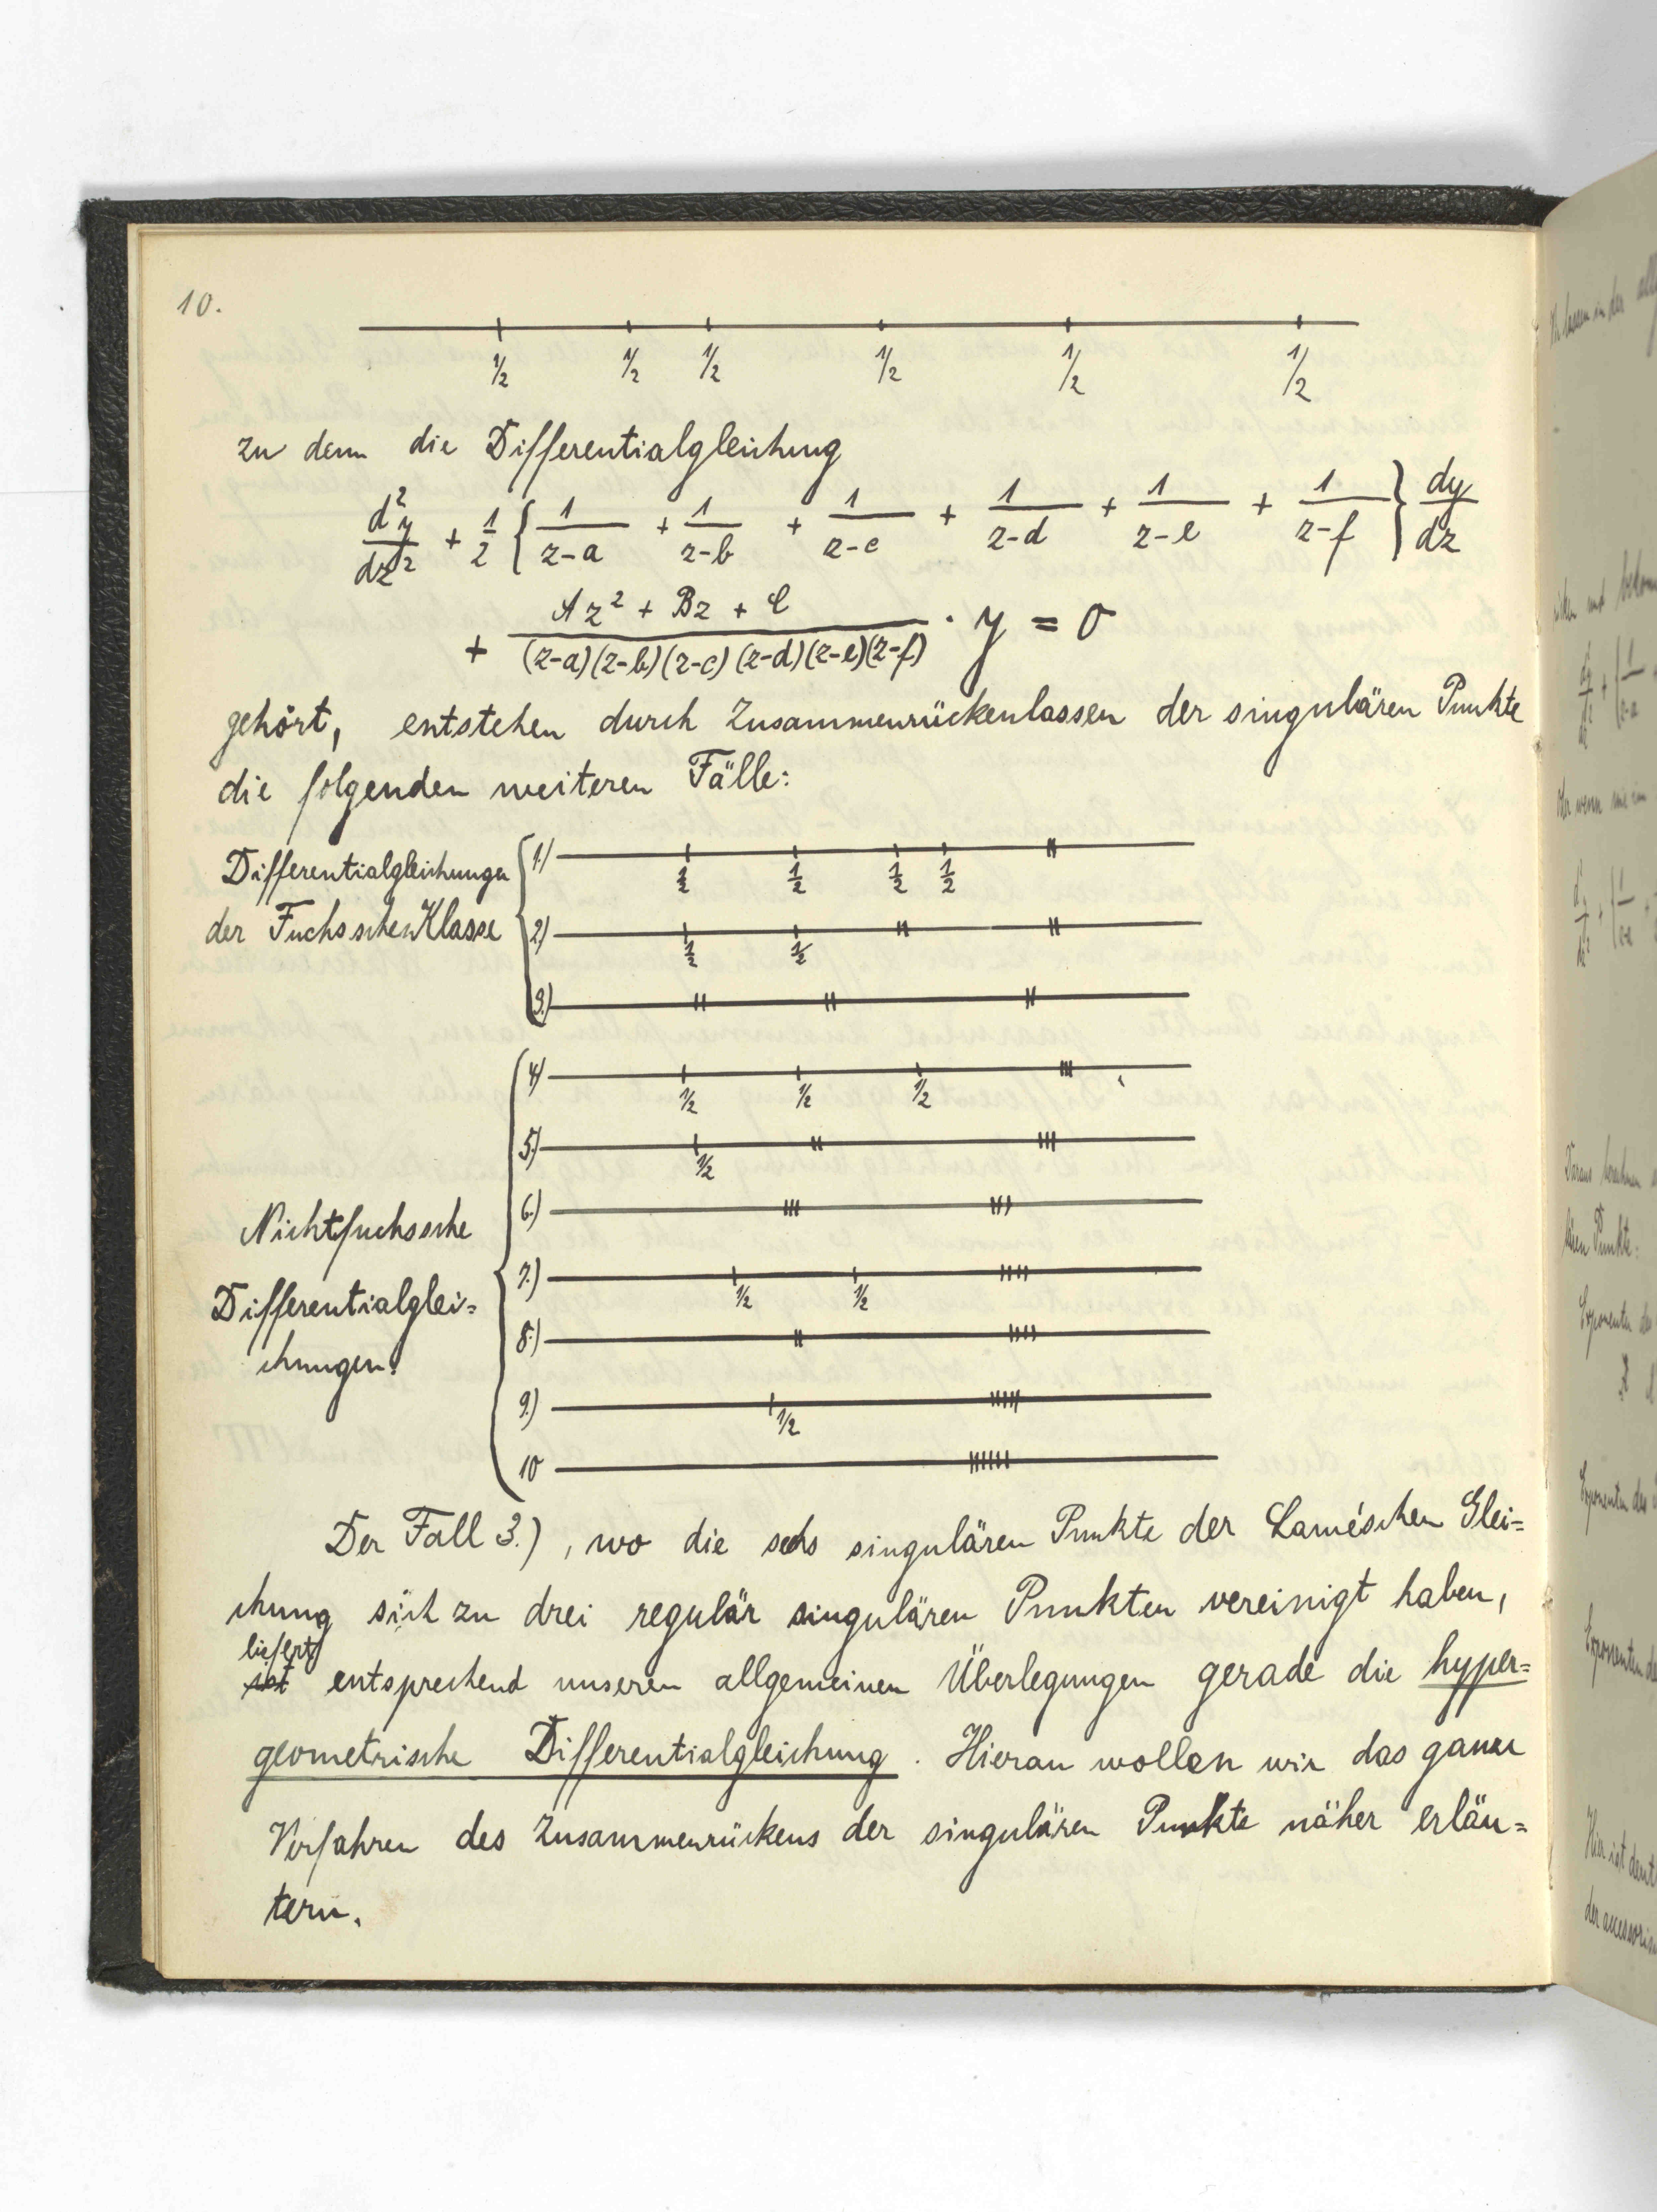 10.
1/2 1/2 1/2 1/2 1/2 1/2
zu dem die Differentialgleichung
d²y/dz² + 1/2 { 1/z-a + 1/z-b + 1/z-c + 1/z-d + 1/z-e + 1/z-f } dy/dz
+ Az² + Bz + C / (z-a)(z-b)(z-c)(z-d)(z-e)(z-f) · y = 0
gehört, entstehen durch Zusammenrückenlassen der singulären Punkte
die folgenden weiteren Fälle:
Differentialgleichungen
der Fuchsschen Klasse
1.) 1/2 1/2 1/2 1/2
2.) 1/2 1/2
3.)
Nichtfuchssche
Differentialglei=
chungen.
4.) 1/2 1/2 1/2
5.) 1/2
6.)
7.) 1/2 1/2
8.)
9.) 1/2
10
Der Fall 3.), wo die sechs singulären Punkte der Lamé'schen Glei=
chung sich zu drei regulär singulären Punkten vereinigt haben,
liefert
ist entsprechend unseren allgemeinen Überlegungen gerade die hyper=
geometrische Differentialgleichung. Hieran wollen wir das ganze
Verfahren des Zusammenrückens der singulären Punkte näher erläu=
tern.